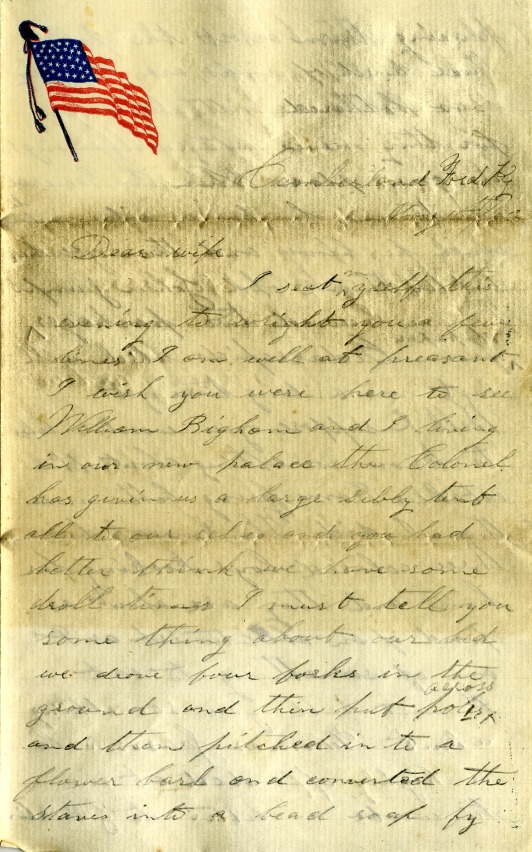 Cumberland Ford Ky
May
Dear wife
I seat myself this
evening to wright you a few
lines I am well at preasant
I wish you were here to see
William Bigham and I living
in our new palace the Colonel
has givin us a large sibly tent
all to our selves and you had
better think we have some
droll times I must tell you
some thing about our bed
we drove four forks in the
ground and then put poles across
and than pitched in to a
flower barl and converted the
staves into a bead